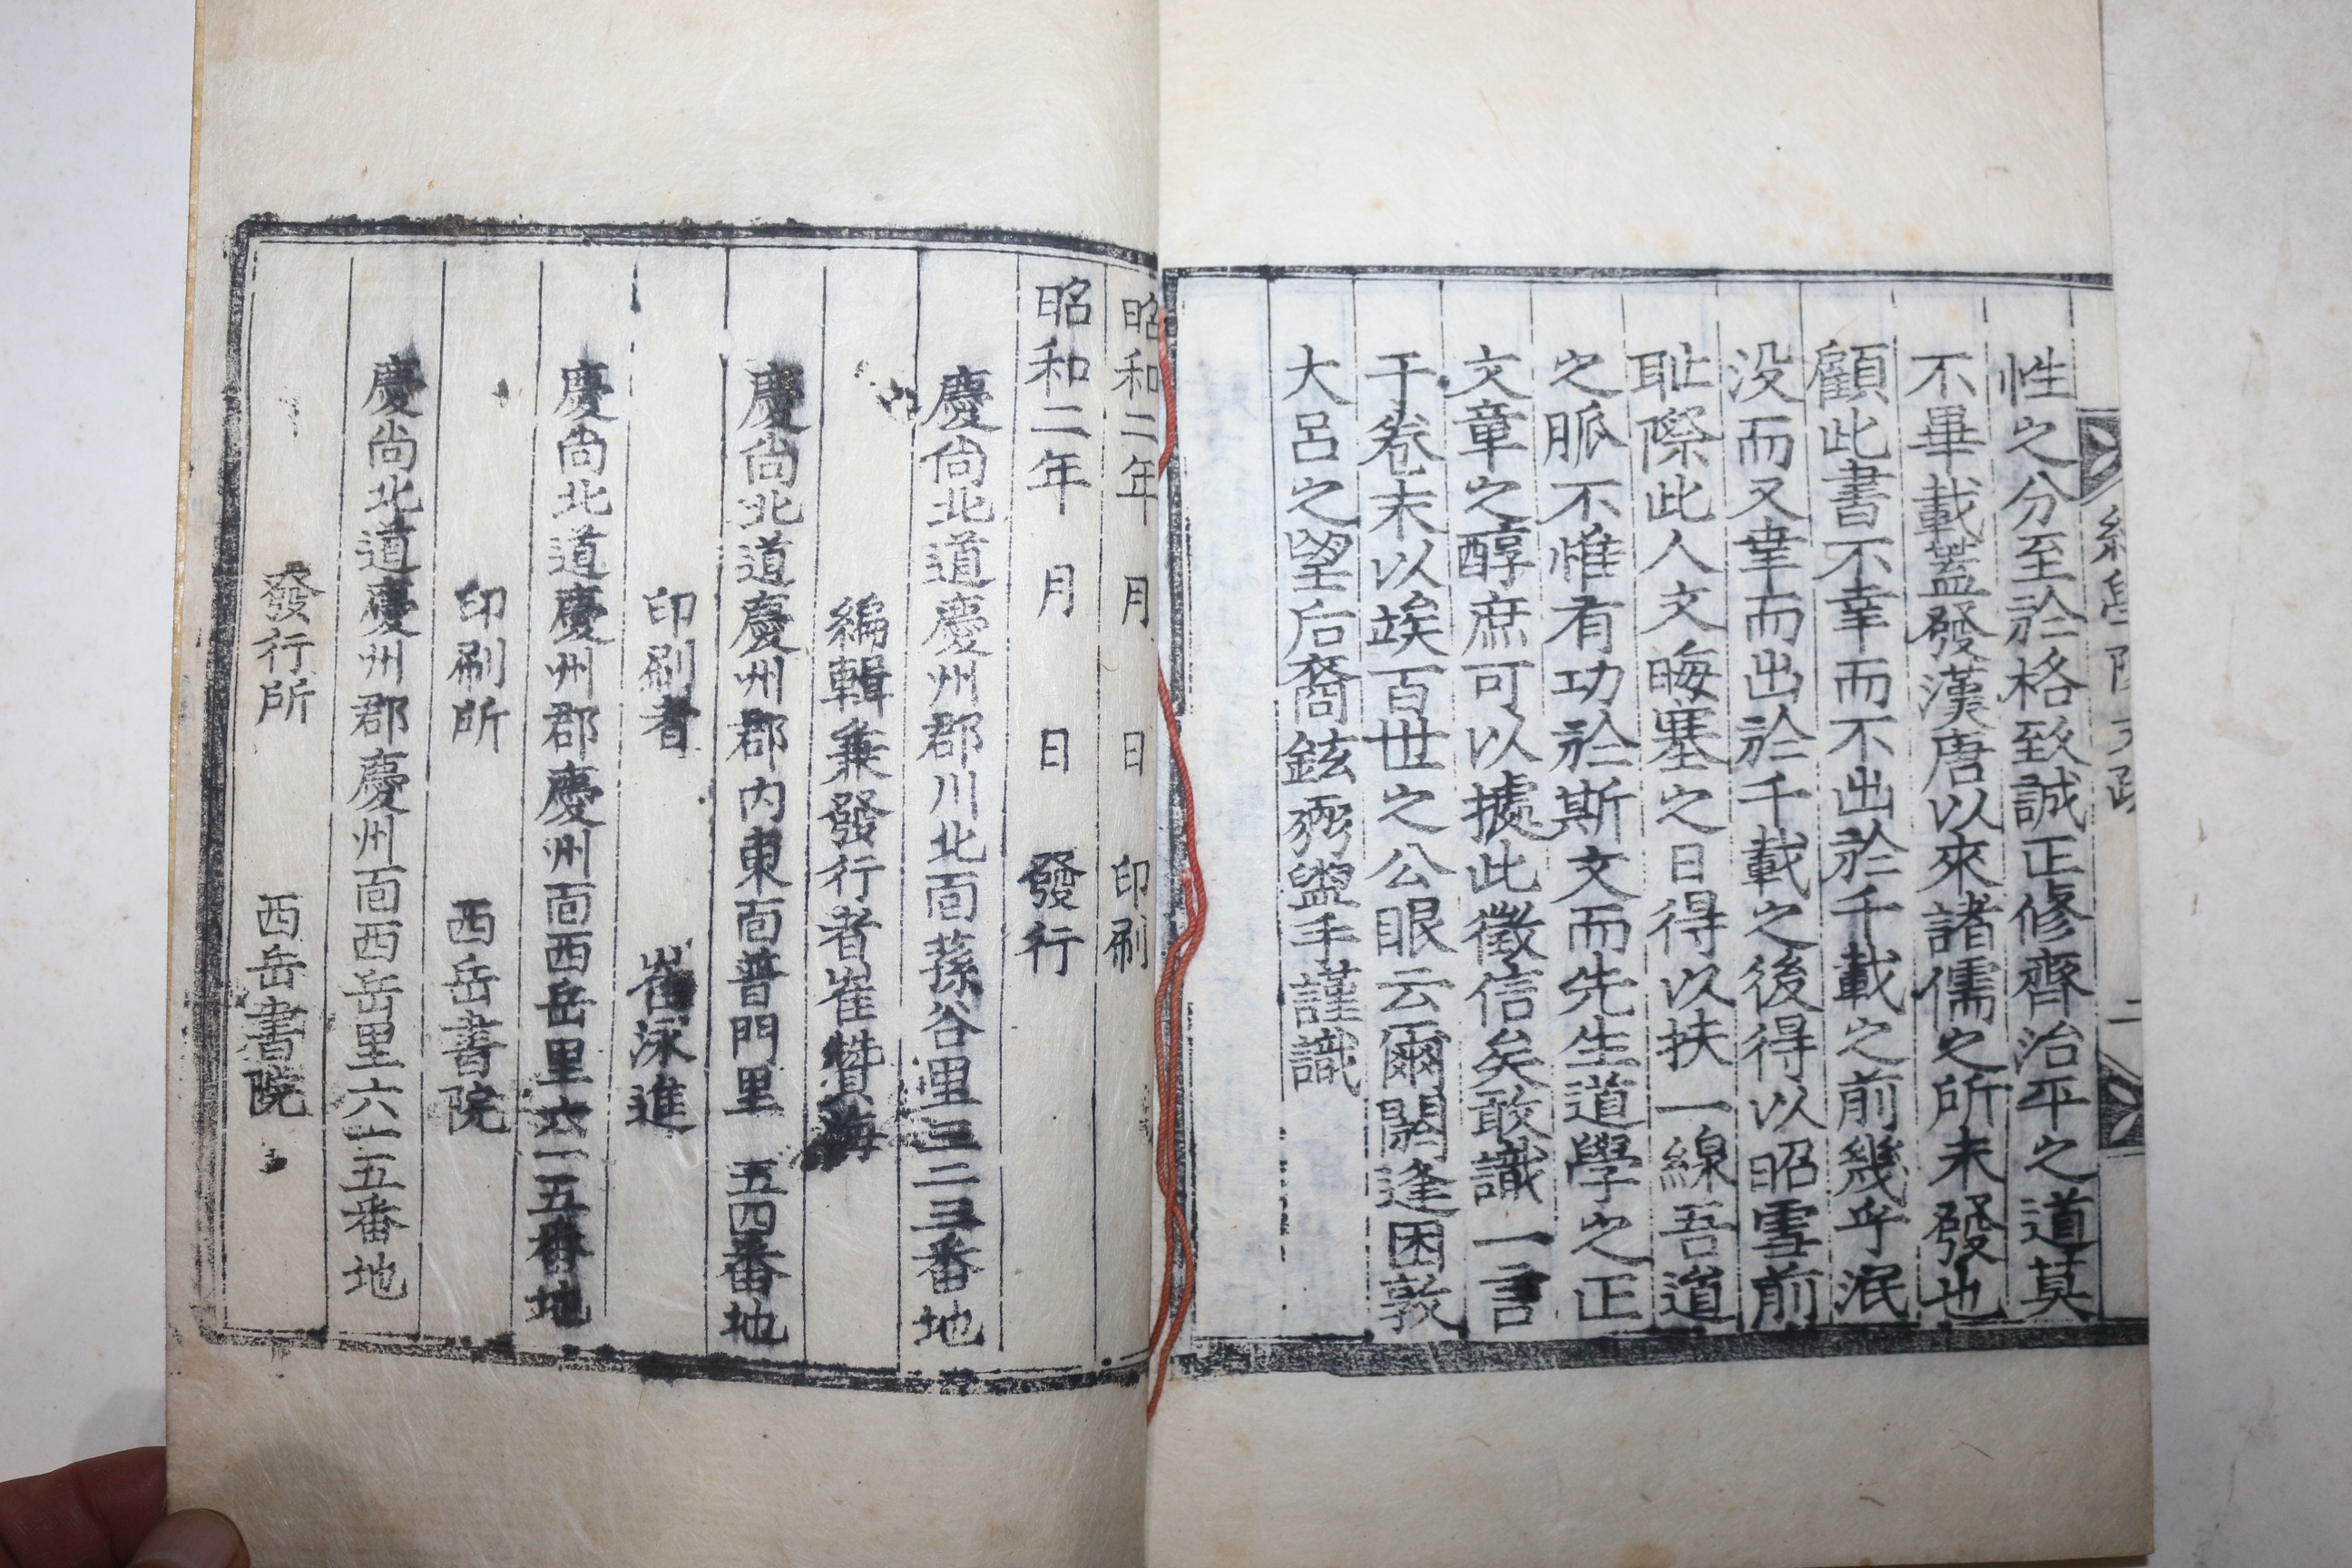 性之分至於格致誠正修齊治平之道莫
不畢載蓋發漢唐以來諸儒之所未發也
顧此書不幸而不出於千載之前幾乎泯
没而又幸而出於千載之後得以昭雪前
耻際此人文晦塞之日得以扶一線吾道
之脈不惟有功於斯文而先生道學之正
文章之醇庶可以據此徵信矣敢識一言
于卷末以竢百世之公眼云爾閼逢困敦
大呂之望后裔鉉弼盥手謹識
昭和二年 月 日 印刷
昭和二年 月 日 發行
慶尙北道慶州郡川北面蓀谷里三二三番地
編輯兼發行者崔贊海
慶尙北道慶州郡內東面普門里 五四番地
印刷者 崔泳進
慶尙北道慶州郡慶州面西岳里六一五番地
印刷所 西岳書院
慶尙北道慶州郡慶州面西岳里六一五番地
發行所 西岳書院